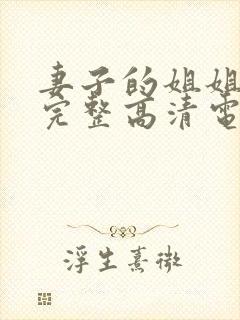 妻子的姐姐
完整高清電
浮生熹微